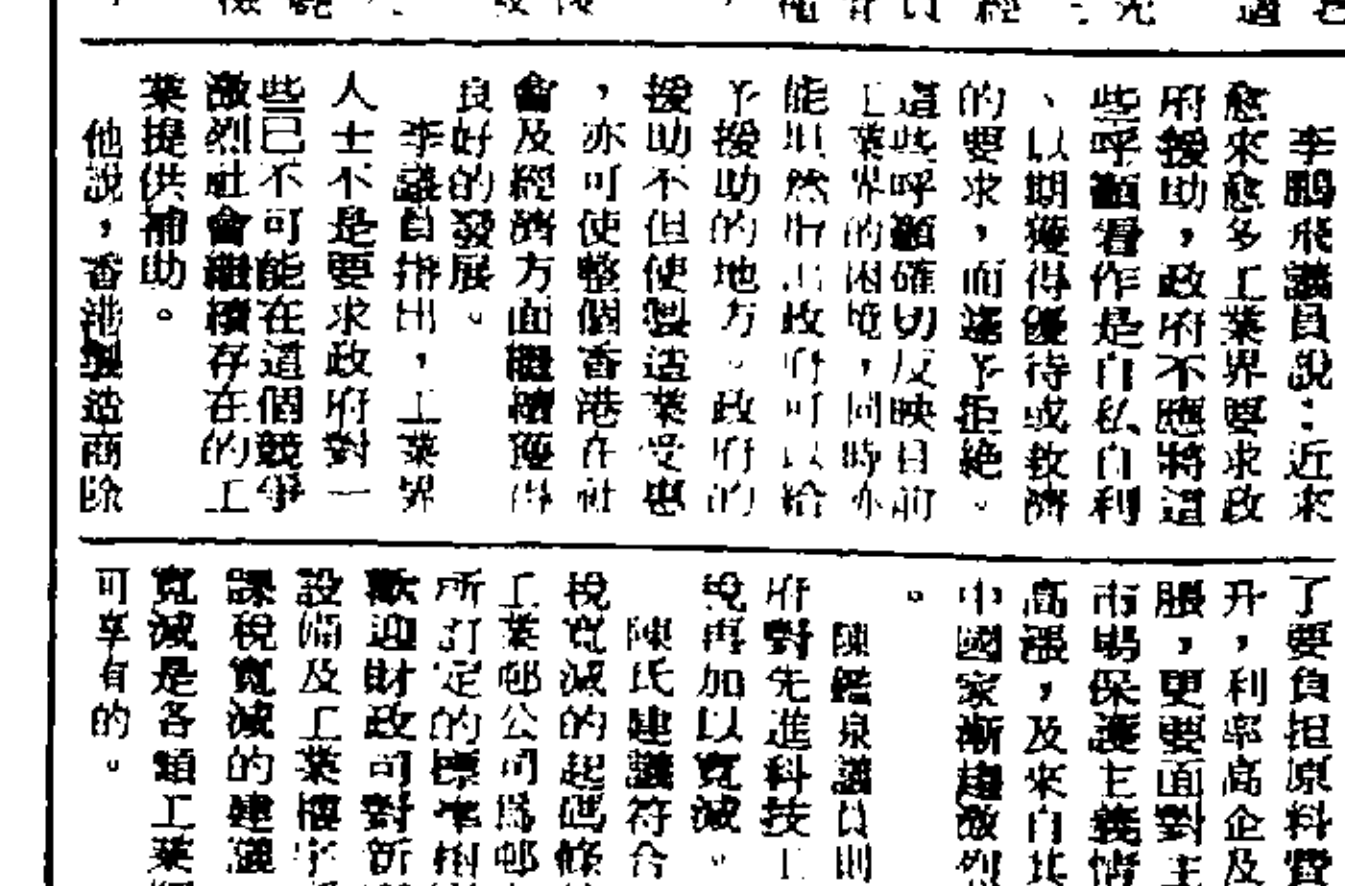 李鵬飛議員說：近來
愈來愈多工業界要求政
府援助，政府不應將這
些呼籲看作是自私自利
、以期獲得優待或救濟
的要求，而遽予拒絶。
這些呼籲確切反映目前
工業界的困境，同時亦
能坦然指出政府可以給
予援助的地方。政府的
援助不但使製造業受惠
，亦可使整個香港在社
會及經濟方面繼續獲得
良好的發展。
李議員指出，工業界
人士不是要求政府對一
些已不可能在這個競爭
激烈社會繼續存在的工
業提供補助。
他說，香港製造商除
了要負担原料費
升，利率高企及
脹，更要面對主
市場保護主義情
高漲，及來自其
中國家漸趨激烈
。
陳鑑泉議員則
府對先進科技工
稅再加以寬減。
陳氏建議符合
稅寬減的起碼條
工業邨公司爲邨
所訂定的標準相
歡迎財政司對新
設備及工業樓宇
課稅寬減的建議
寬減是各類工業
可享有的。